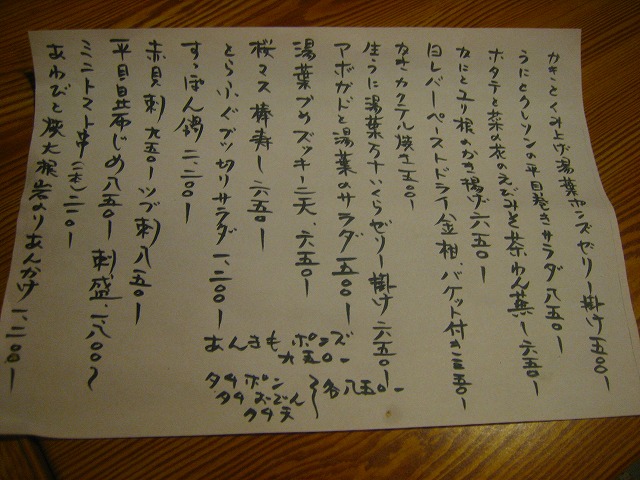 かきとくみ上げ湯葉ポンズゼリー掛け 五〇〇ー
うにとクレソンの平目巻きサラダ 八五〇ー
ホタテと菜の花のえびみそ茶わん蒸し 六五〇ー
かにとユリ根のかき揚げ 六五〇ー
白レバーペーストドライ金柑、バケット付き 三五〇ー
かきカクテル焼き 五〇〇ー
生うに湯葉 いくらゼリー掛け 六五〇ー
アボガドと湯葉のサラダ 五〇〇ー
湯葉づめズッキーニ天、六五〇ー
桜マス棒寿し 六五〇ー
とらふぐブツ切りサラダ 一、二〇〇ー
すっぽん鍋 二、二〇〇ー
赤貝刺 九五〇ー ツブ刺 八五〇ー
平目昆布じめ 八五〇ー 刺盛、一、八〇〇〜
ミニトマト串(二本) 二一〇ー
あわびと炭大根岩のりあんかけ 一、二〇〇ー
あんきもポンズ
九五〇ー
タチポン
タチおでん
タチ天
各八五〇ー